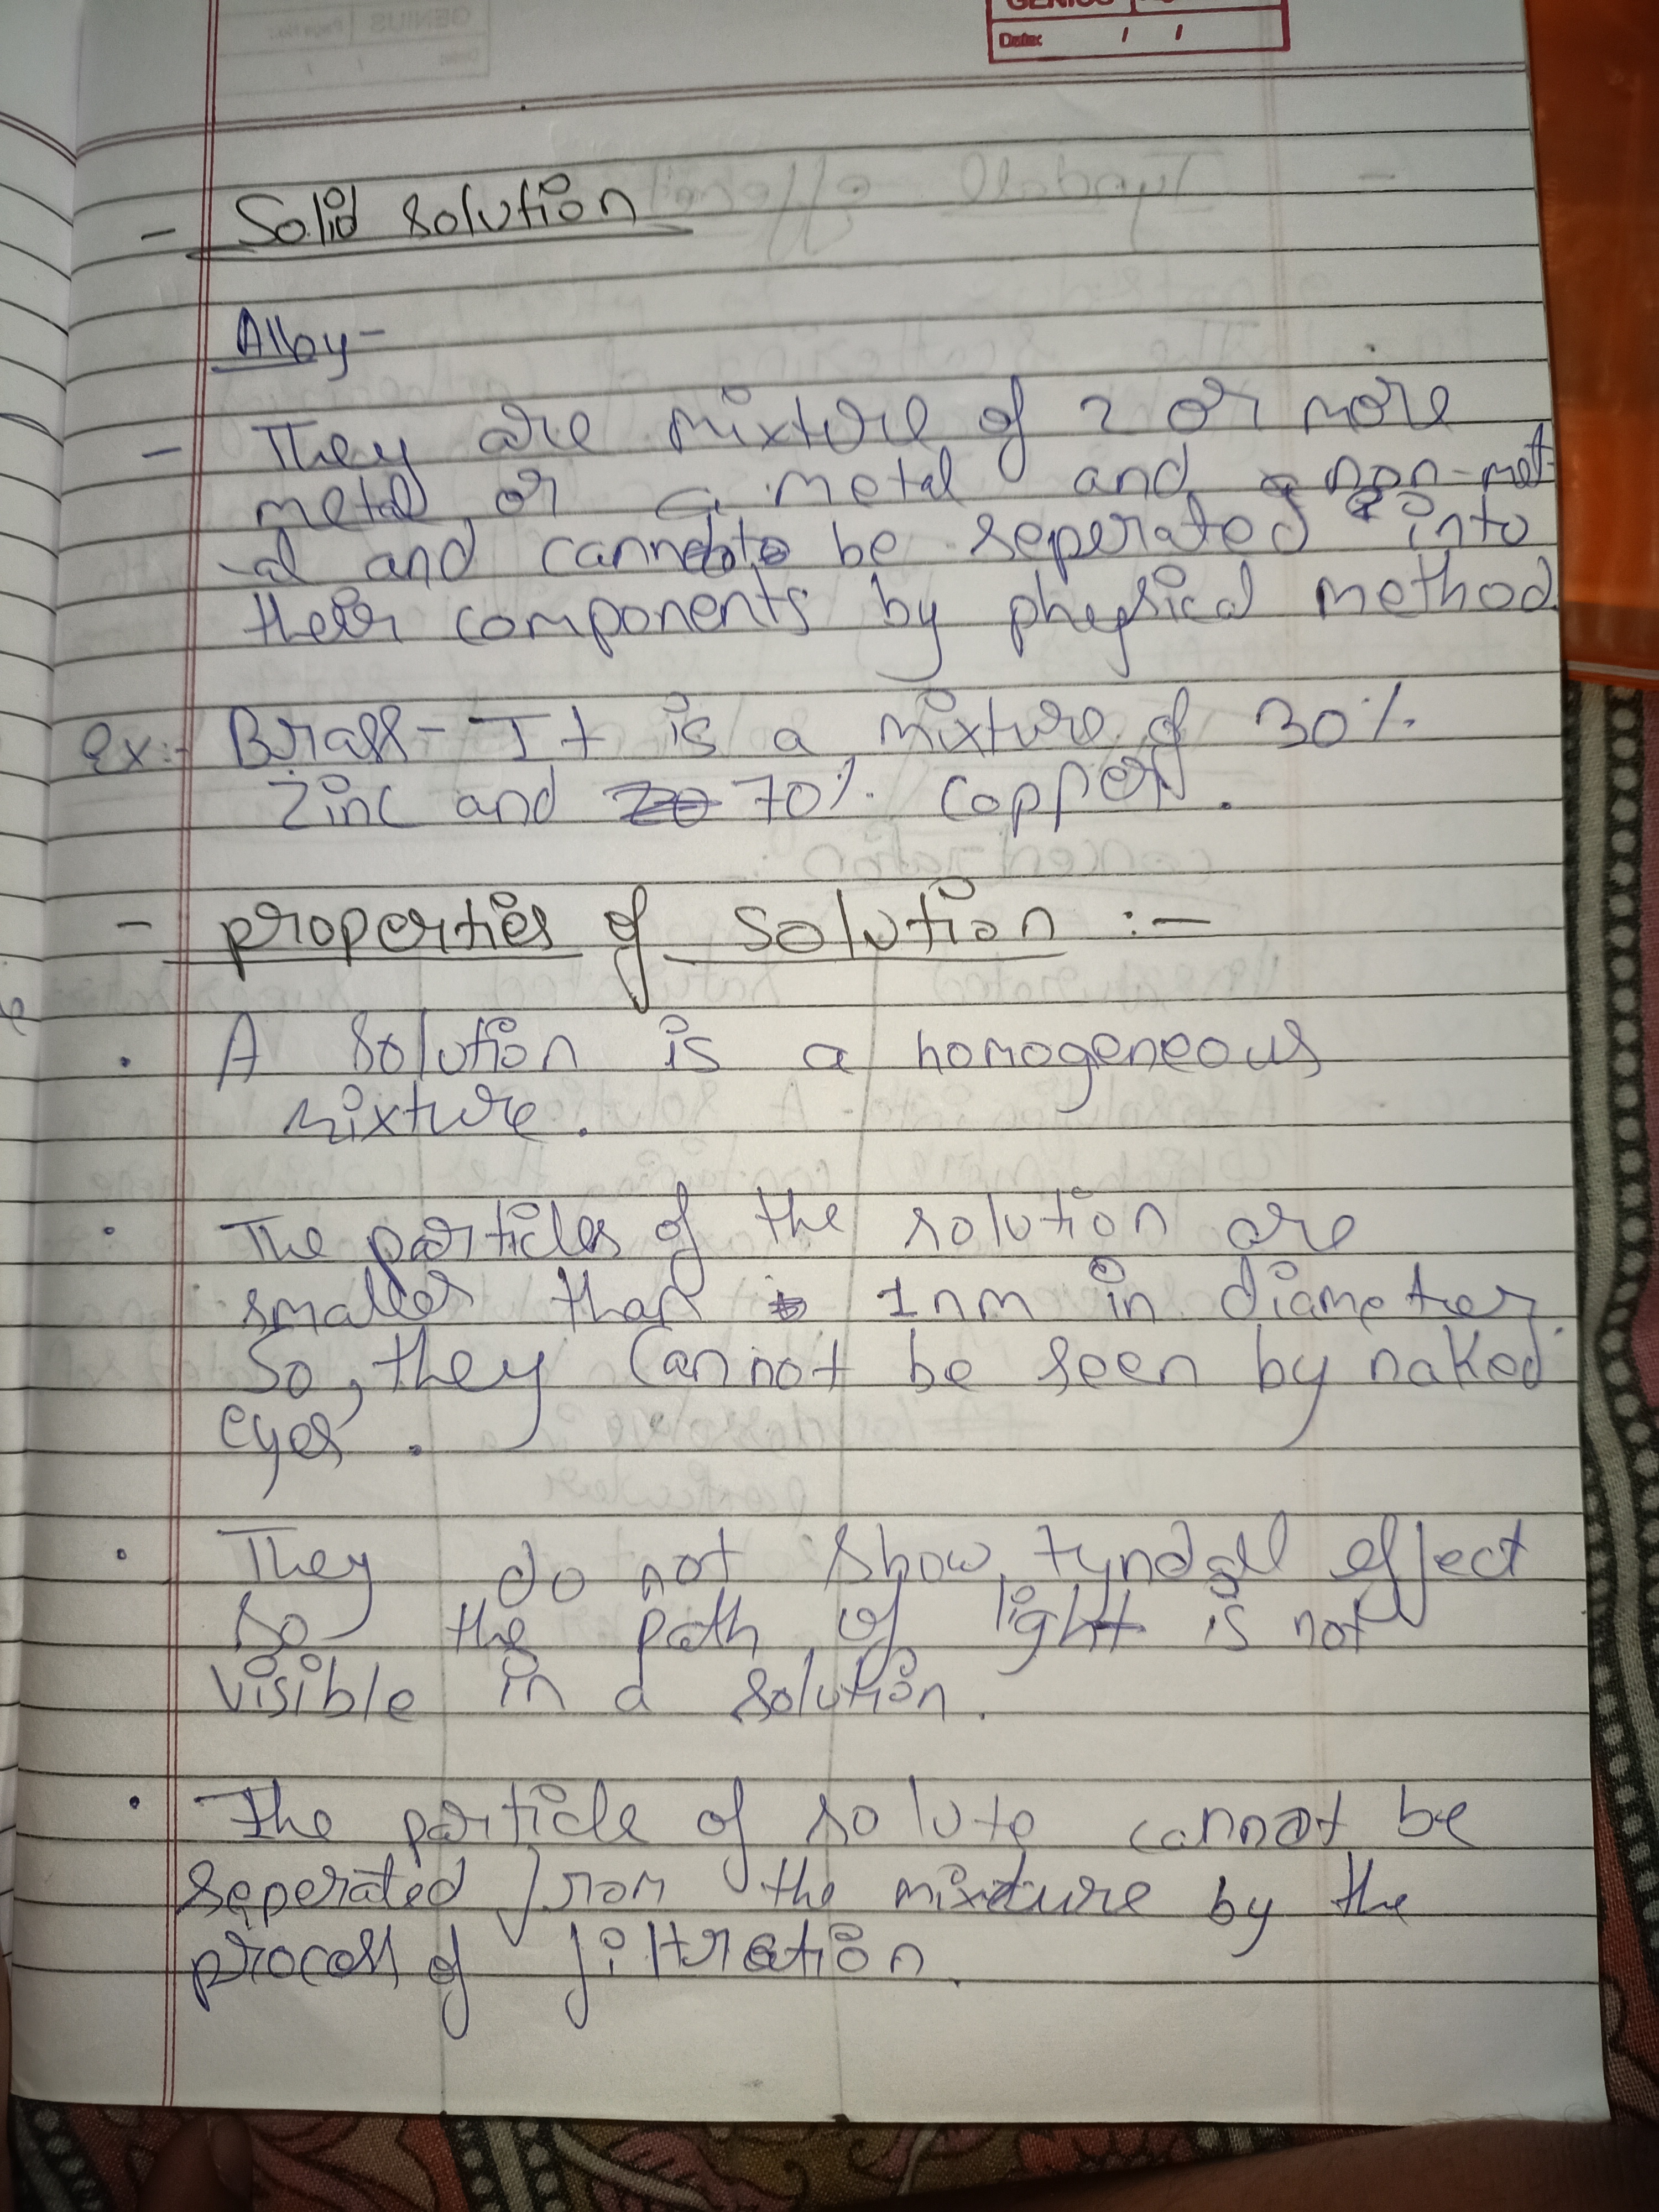 GENIUS
Date: / /
- Solid solution
Alloy-
- They are mixture of 2 or more
metal or a metal and a non-met
-al and cannot be seperated into
their components by physical method
Ex:- Brass- It is a mixture of 30%
Zinc and 70% copper.
- properties of solution :-
. A solution is a homogeneous
mixture.
. The particles of the solution are
smaller than 1nm in diameter.
So, they Cannot be seen by naked
eyes.
. They do not show tyndall effect
so the path of light is not
visible in a solution.
. The particle of solute cannot be
seperated from the mixture by the
process of filtration.